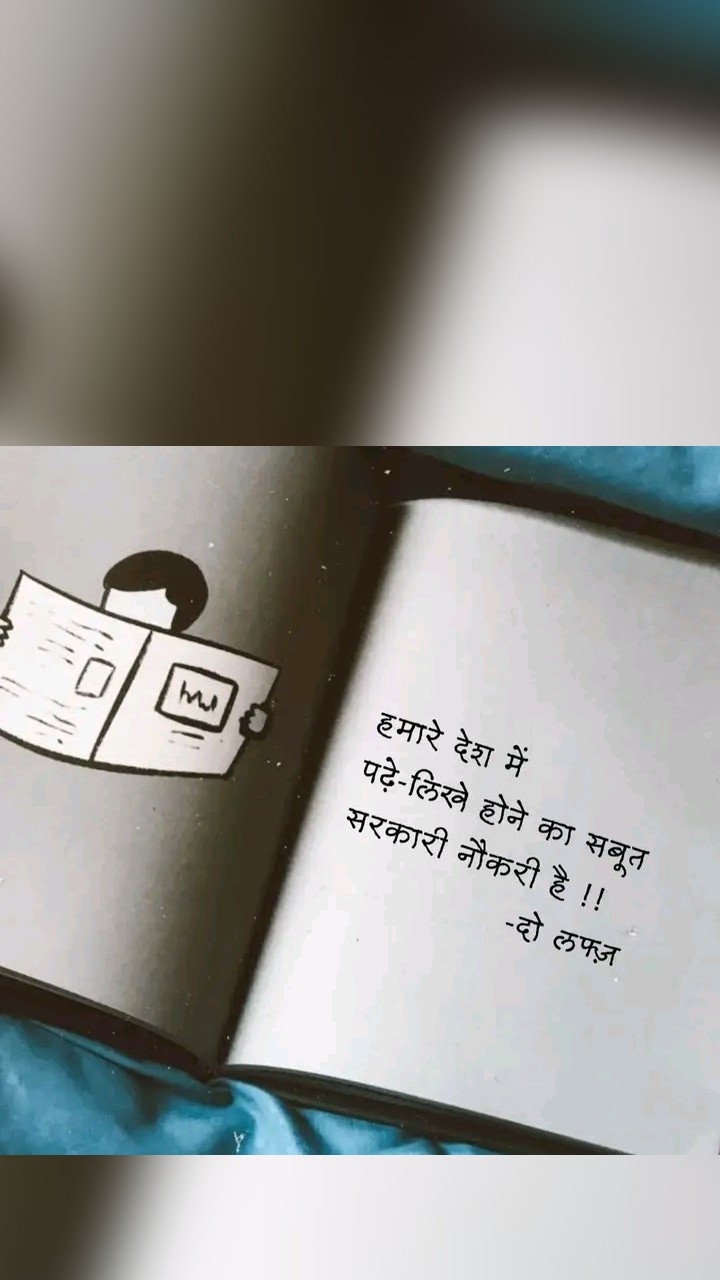 हमारे देश में
पढ़े-लिखे होने का सबूत
सरकारी नौकरी है !!
-दो लफ्ज़